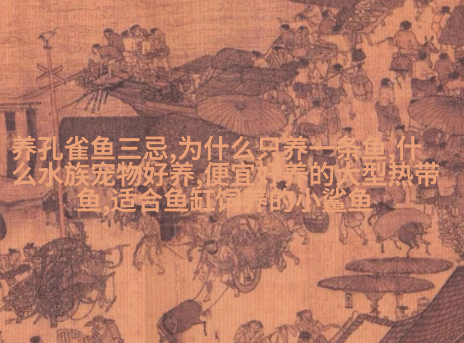 养孔雀鱼三忌,为什么只养一条鱼,什
么水族宠物好养,便宜好养的大型热带
鱼,适合鱼缸饲养的小鲨鱼